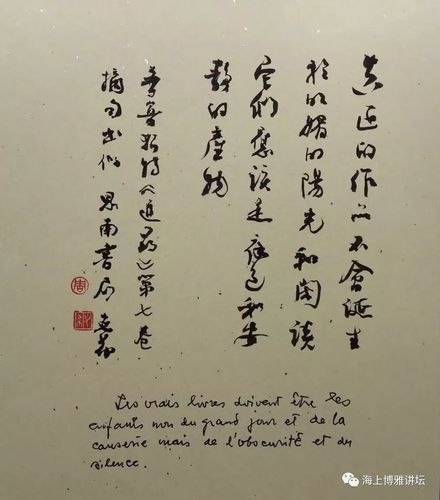 真正的作品不會誕生
於明媚的陽光和閑談
它們應該是夜色和安
靜的產物
普魯斯特《追尋》第七卷
摘句 思南書局 克希
周
Les vrais livres doivent être les
enfants non du grand jour et de la
causerie mais de l'obscurité et du
silence.
海上博雅讲坛